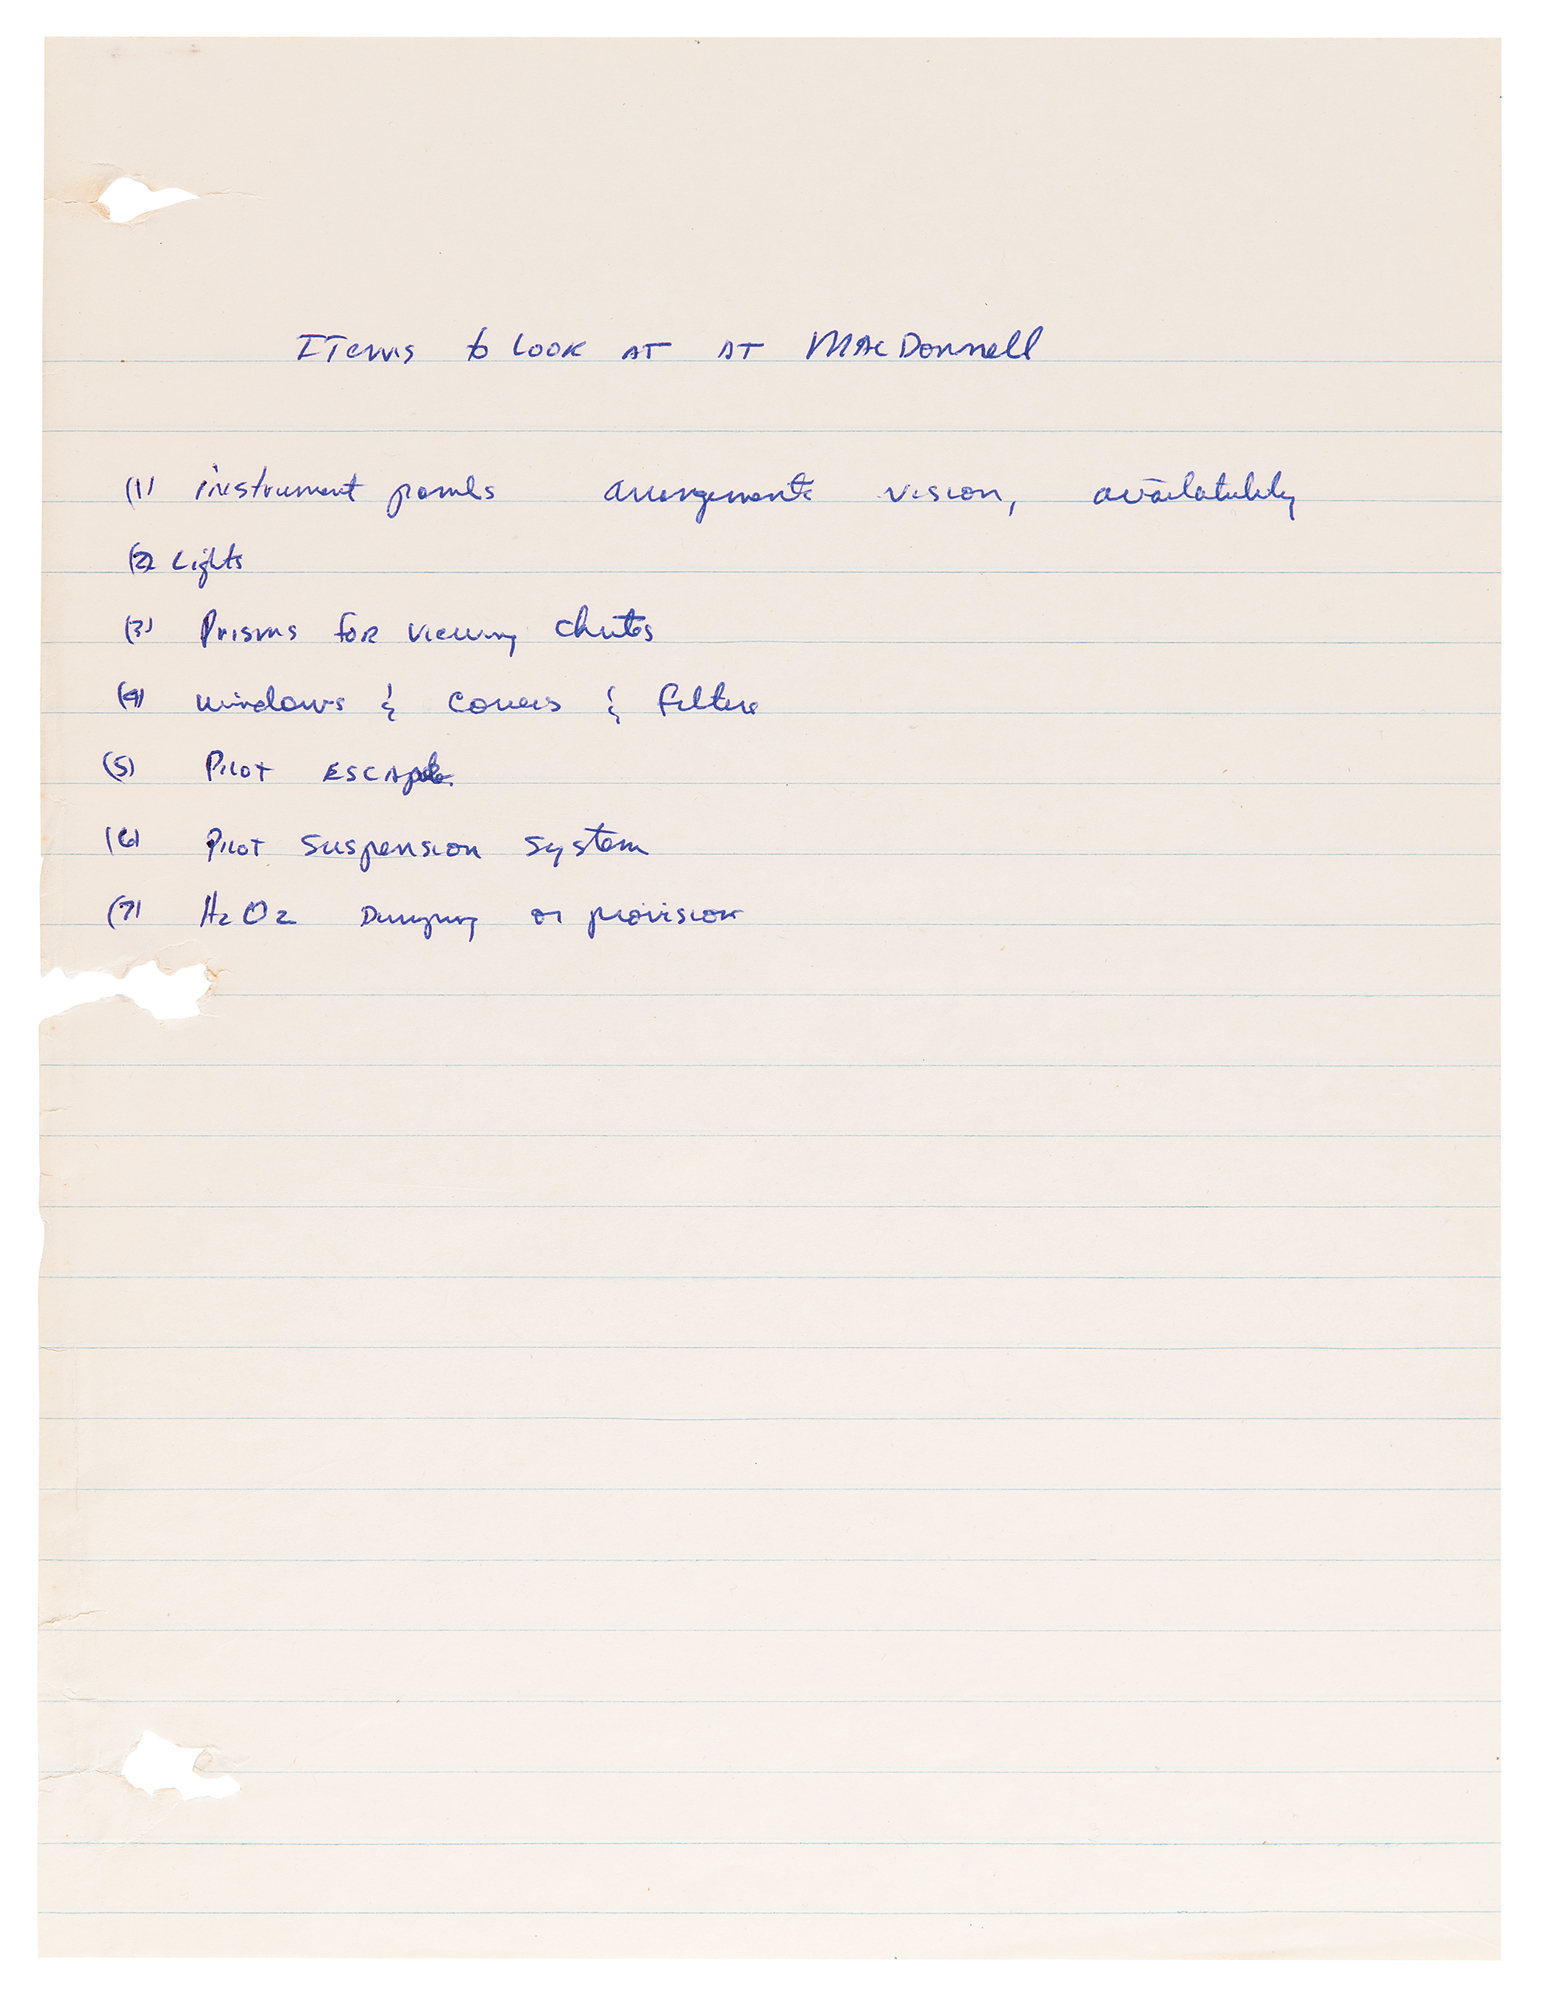 Items to Look AT AT MACDonnell
(1) instrument panels arrangements vision, availability
(2) Lights
(3) Prisms for viewing chutes
(4) windows & covers & filters
(5) Pilot ESCAPE
(6) Pilot Suspension System
(7) H2O2 Dumping or provision